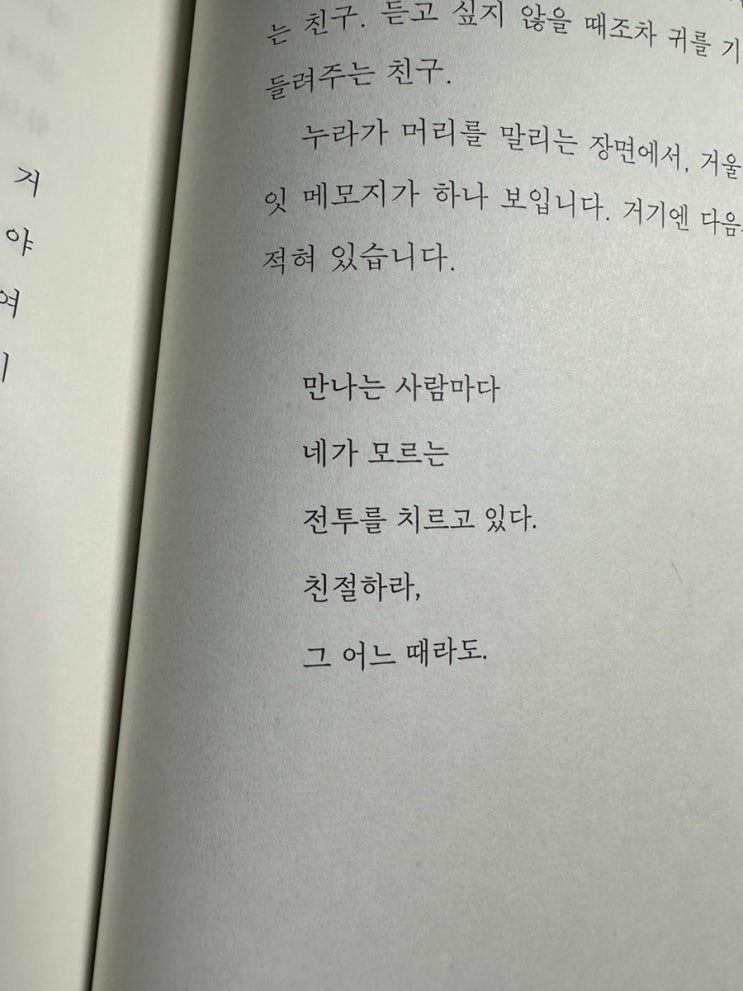 거
야
여
는 친구. 듣고 싶지 않을 때조차 귀를 기
들려주는 친구.
누라가 머리를 말리는 장면에서, 거울
잇 메모지가 하나 보입니다. 거기엔 다음
적혀 있습니다.
만나는 사람마다
네가 모르는
전투를 치르고 있다.
친절하라,
그 어느 때라도.